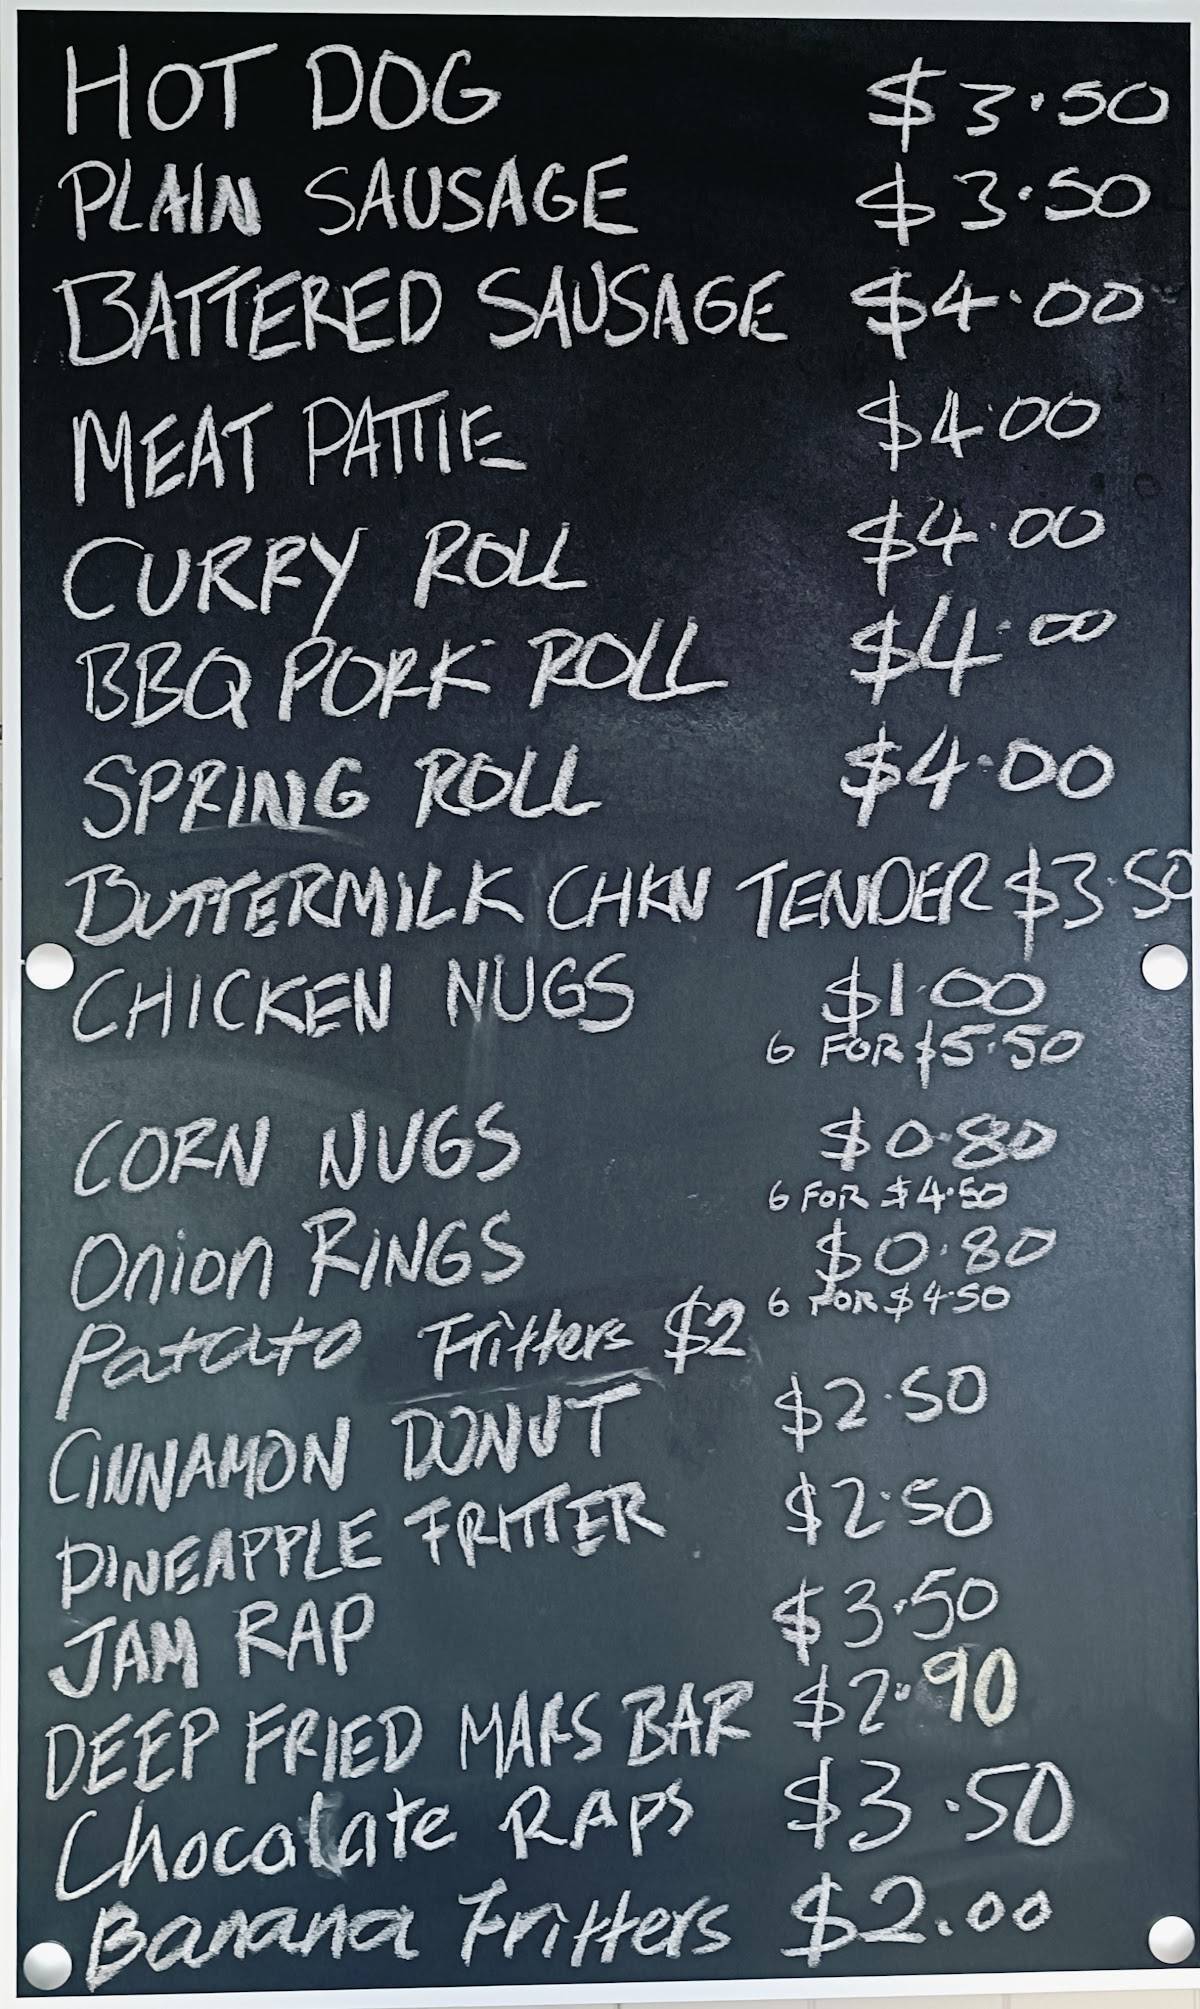 HOT DOG $3.50
PLAIN SAUSAGE $3.50
BATTERED SAUSAGE $4.00
MEAT PATTIE $4.00
CURRY ROLL $4.00
BBQ PORK ROLL $4.00
SPRING ROLL $4.00
BUTTERMILK CHKN TENDER $3.50
CHICKEN NUGS $1.00
6 FOR $5.50
CORN NUGS $0.80
6 FOR $4.50
Onion RINGS $0.80
6 FOR $4.50
Patato Fritters $2
CINNAMON DONUT $2.50
PINEAPPLE FRITTER $2.50
JAM RAP $3.50
DEEP FRIED MARS BAR $2.90
Chocolate RAPS $3.50
Banana Fritters $2.00